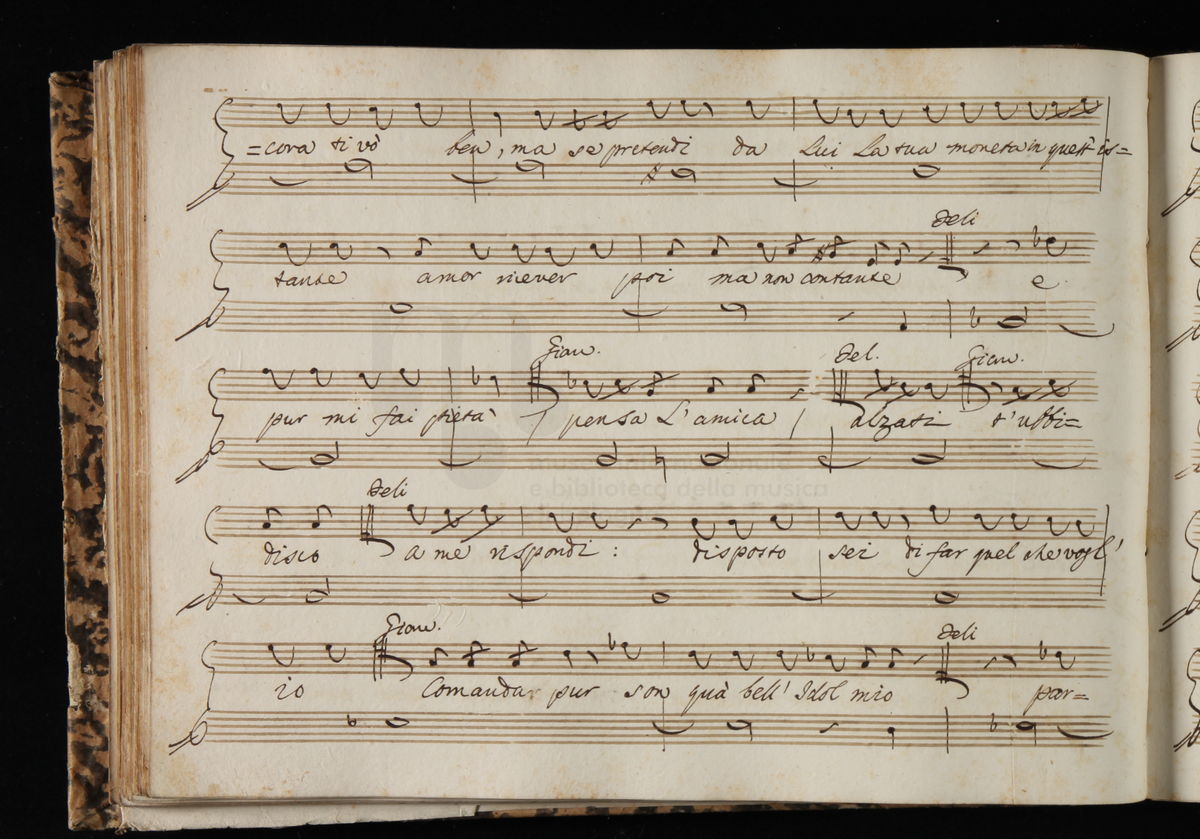 =cora ti vò ben, ma se pretendi da Lui La tua moneta in quest' is=
Deli
tante amor riever poi ma non contante e
Gian.
Del.
Gian.
pur mi fai pietà / pensa L'amica / alzati t'ubbi=
Deli
disco a me rispondi: disposto sei di far quel che vogl'
Gian.
Deli
io Comandar pur son quà bell' Idol mio par=
e biblioteca della musica